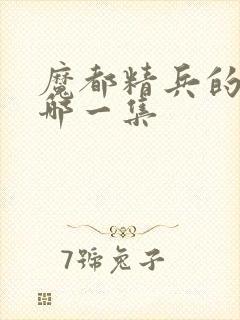 魔都精兵的
哪一集
7號兔子